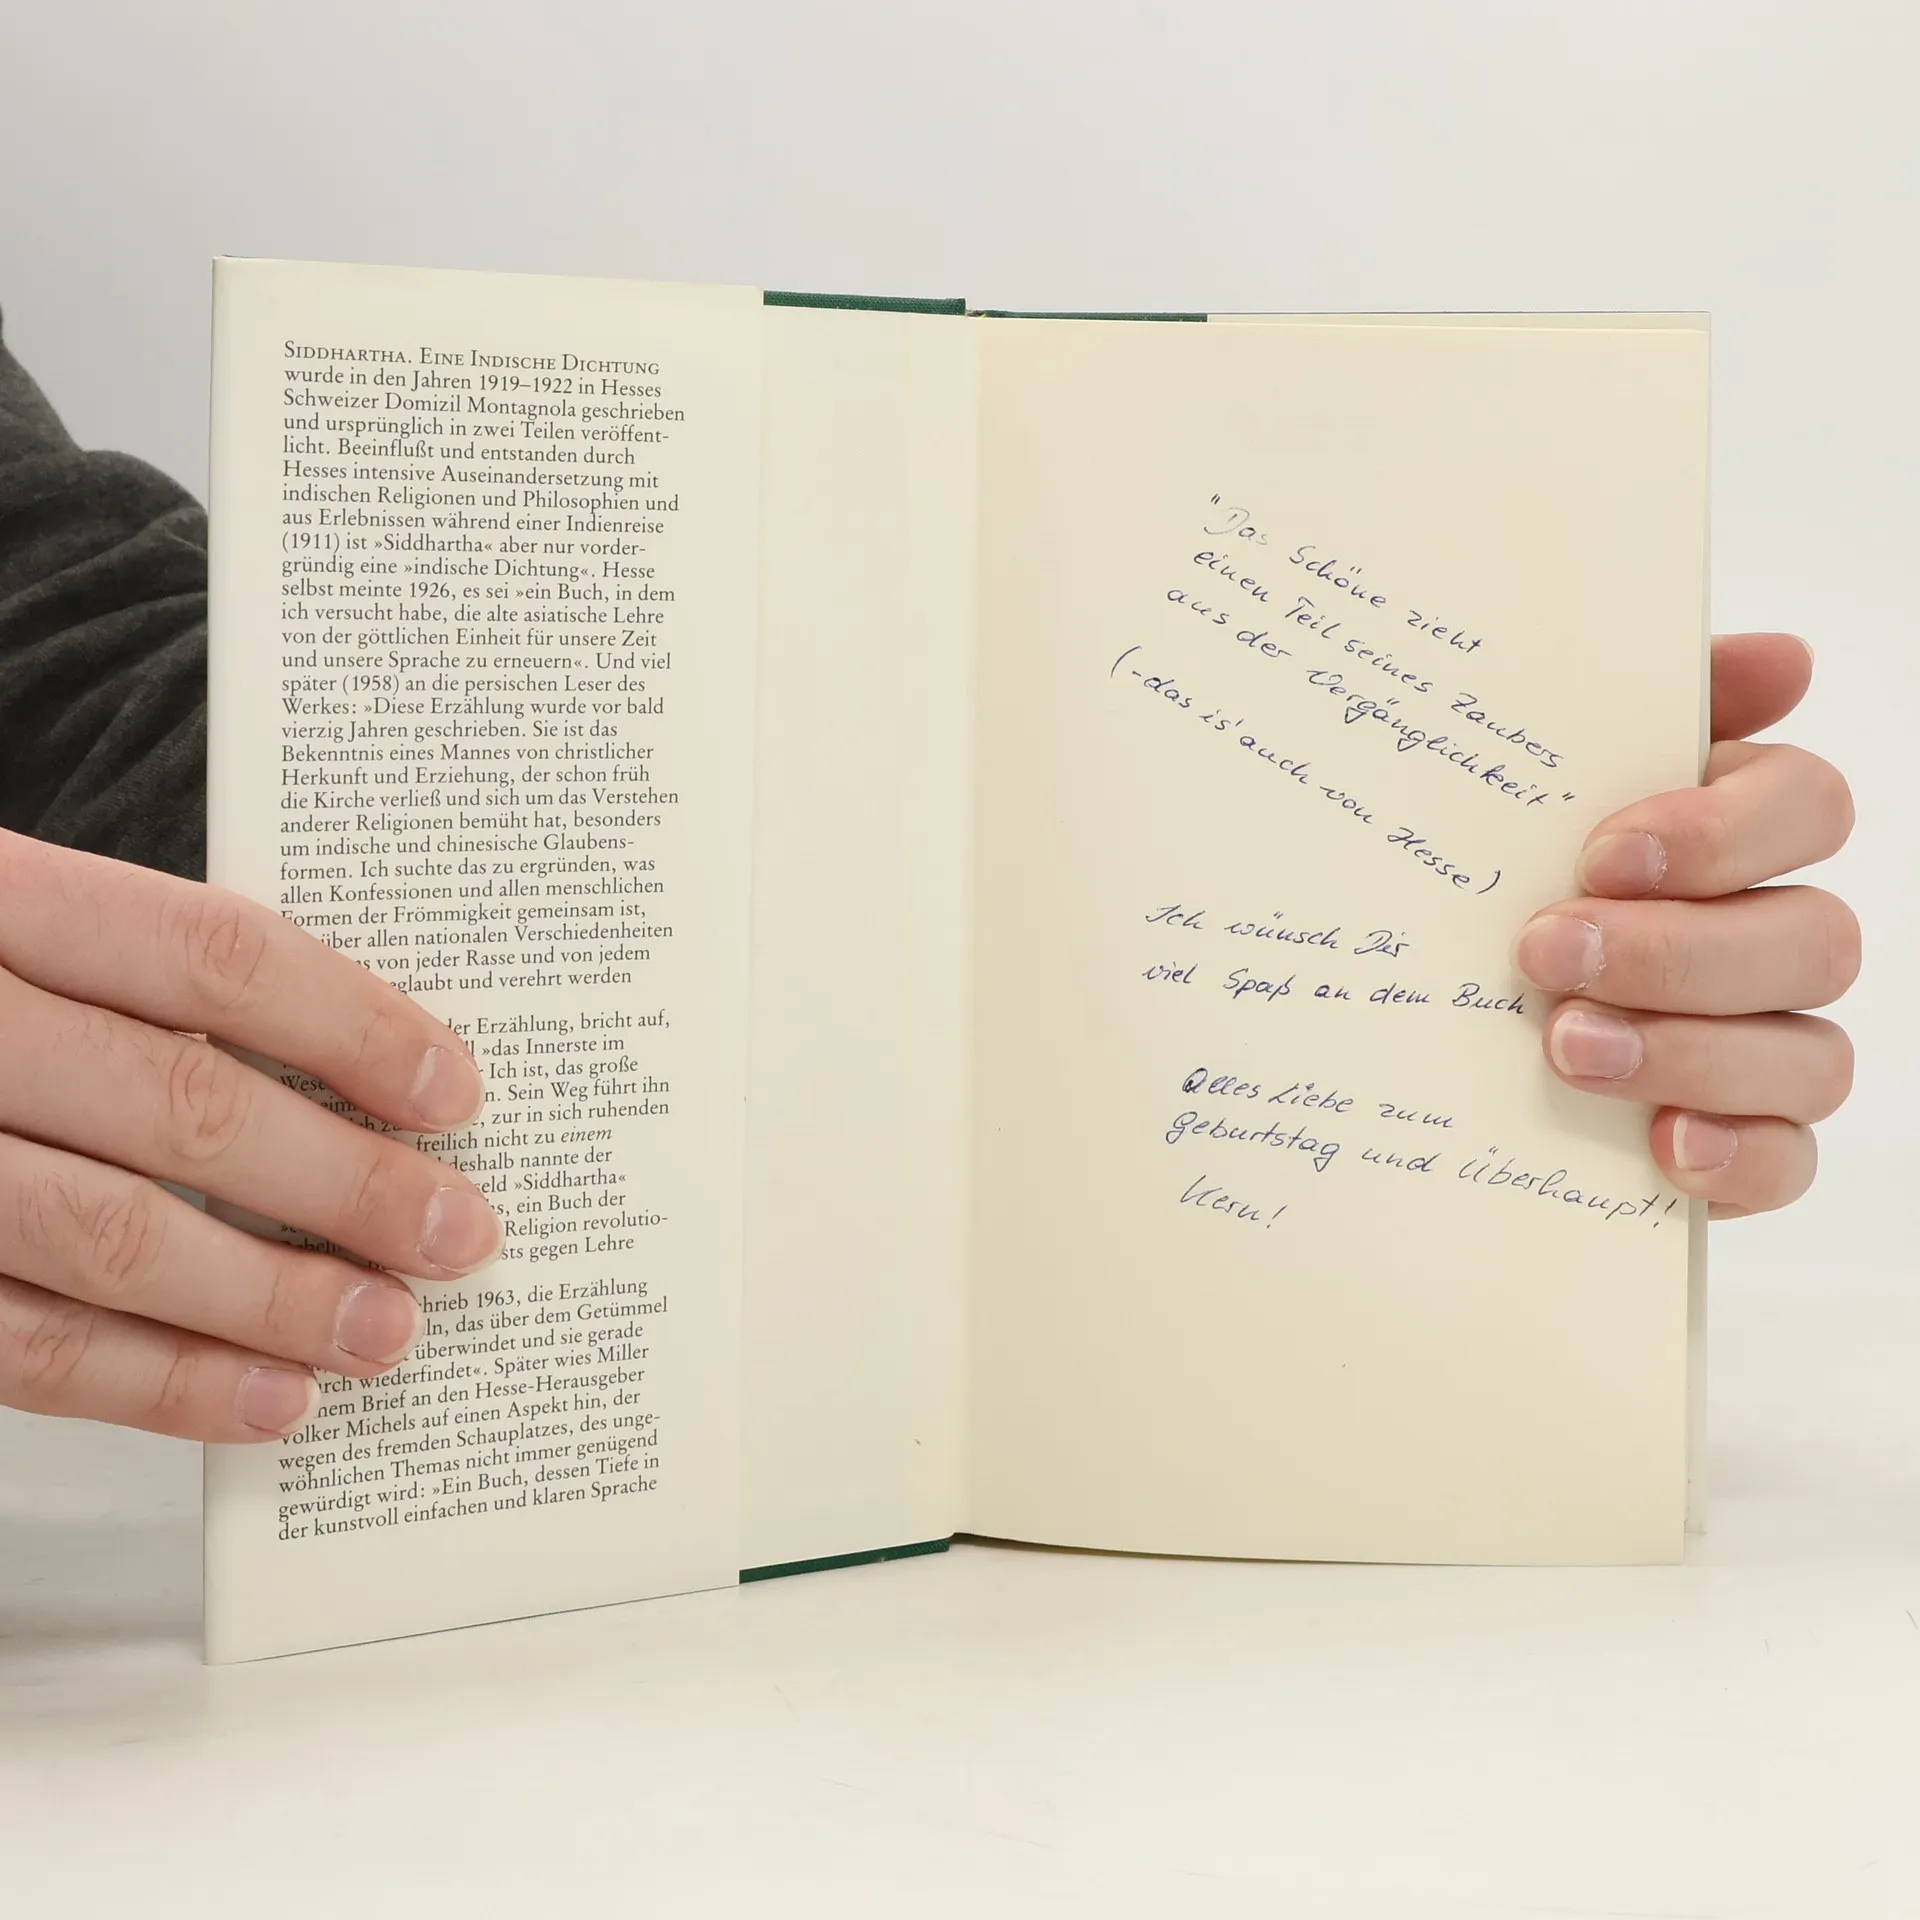 SIDDHARTHA. EINE INDISCHE DICHTUNG
wurde in den Jahren 1919–1922 in Hesses
Schweizer Domizil Montagnola geschrieben
und ursprünglich in zwei Teilen veröffent-
licht. Beeinflußt und entstanden durch
Hesses intensive Auseinandersetzung mit
indischen Religionen und Philosophien und
aus Erlebnissen während einer Indienreise
(1911) ist »Siddhartha« aber nur vorder-
gründig eine »indische Dichtung«. Hesse
selbst meinte 1926, es sei »ein Buch, in dem
ich versucht habe, die alte asiatische Lehre
von der göttlichen Einheit für unsere Zeit
und unsere Sprache zu erneuern«. Und viel
später (1958) an die persischen Leser des
Werkes: »Diese Erzählung wurde vor bald
vierzig Jahren geschrieben. Sie ist das
Bekenntnis eines Mannes von christlicher
Herkunft und Erziehung, der schon früh
die Kirche verließ und sich um das Verstehen
anderer Religionen bemüht hat, besonders
um indische und chinesische Glaubens-
formen. Ich suchte das zu ergründen, was
allen Konfessionen und allen menschlichen
Formen der Frömmigkeit gemeinsam ist,
über allen nationalen Verschiedenheiten
von jeder Rasse und von jedem
und verehrt werden
Erzählung, bricht auf,
»das Innerste im
Ich ist, das große
Sein Weg führt ihn
zur in sich ruhenden
freilich nicht zu einem
deshalb nannte der
»Siddhartha«
ein Buch der
Religion revolutio-
gegen Lehre
1963, die Erzählung
das über dem Getümmel
überwindet und sie gerade
wiederfindet«. Später wies Miller
Brief an den Hesse-Herausgeber
Volker Michels auf einen Aspekt hin, der
wegen des fremden Schauplatzes, des unge-
wöhnlichen Themas nicht immer genügend
gewürdigt wird: »Ein Buch, dessen Tiefe in
der kunstvoll einfachen und klaren Sprache
"Das Schöne zieht
einen Teil seines Zaubers
aus der Vergänglichkeit"
(-das is' auch von Hesse)
Ich wünsch Dir
viel Spaß an dem Buch
Alles Liebe zum
Geburtstag und Überhaupt!